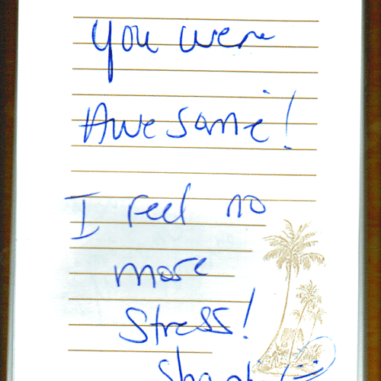 You were
Awesome!
I Feel no
more
Stress!